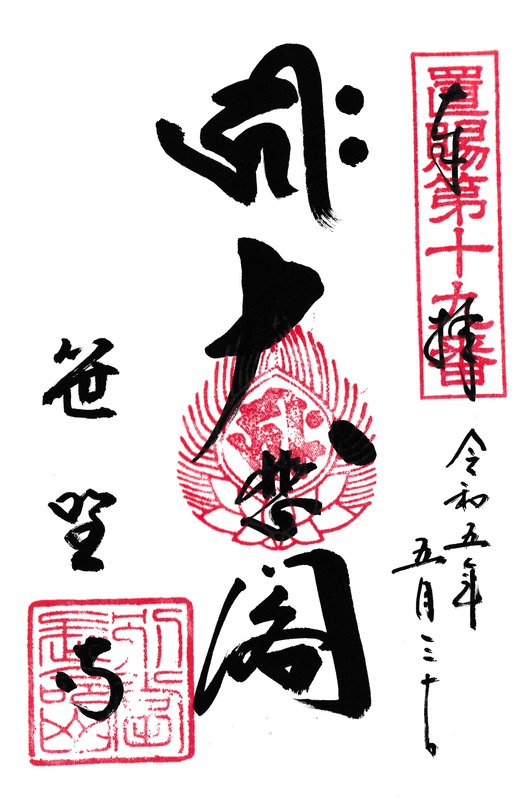 奉
拝
置賜第十九番
令和五年
五月三十日
大悲閣
笹野寺